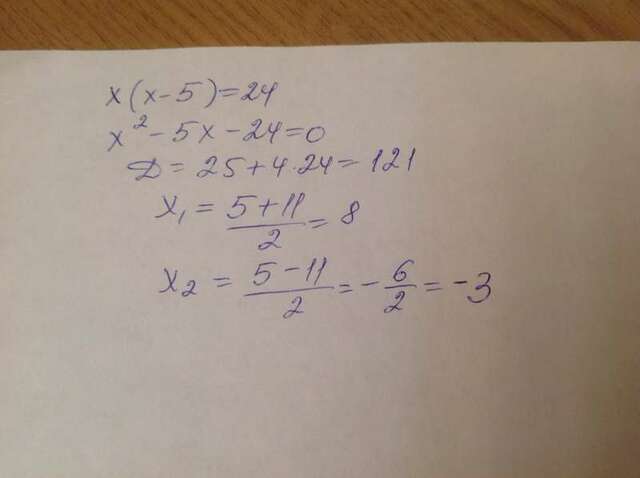 x(x-5)=24
x²-5x-24=0
Д=25+4·24=121
x₁=(5+11)/2=8
x₂=(5-11)/2=-6/2=-3